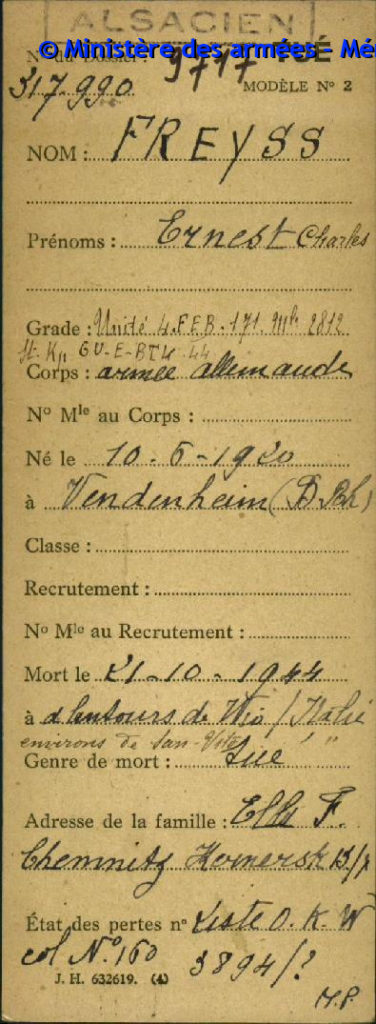 ALSACIEN
© Ministère des armées - Mé
No du Dossier : 9717 TUÉ
317.990 MODÈLE No 2
NOM : FREYSS
Prénoms : Ernest Charles
Grade : Unité 4.F.E.B.171. 2812
St. Kp GU-E-BTL 44
Corps : armée allemande
No Mle au Corps :
Né le 10-6-1920
à Vendenheim (B.Rh)
Classe :
Recrutement :
No Mle au Recrutement :
Mort le 21-10-1944
à alentours de / Italie
environs de San-Vito
Genre de mort : Tué
Adresse de la famille : F.
Chemnitz
État des pertes no Liste O.K.W
col No 160 3894/?
J. H. 632619. (4)
M.P.